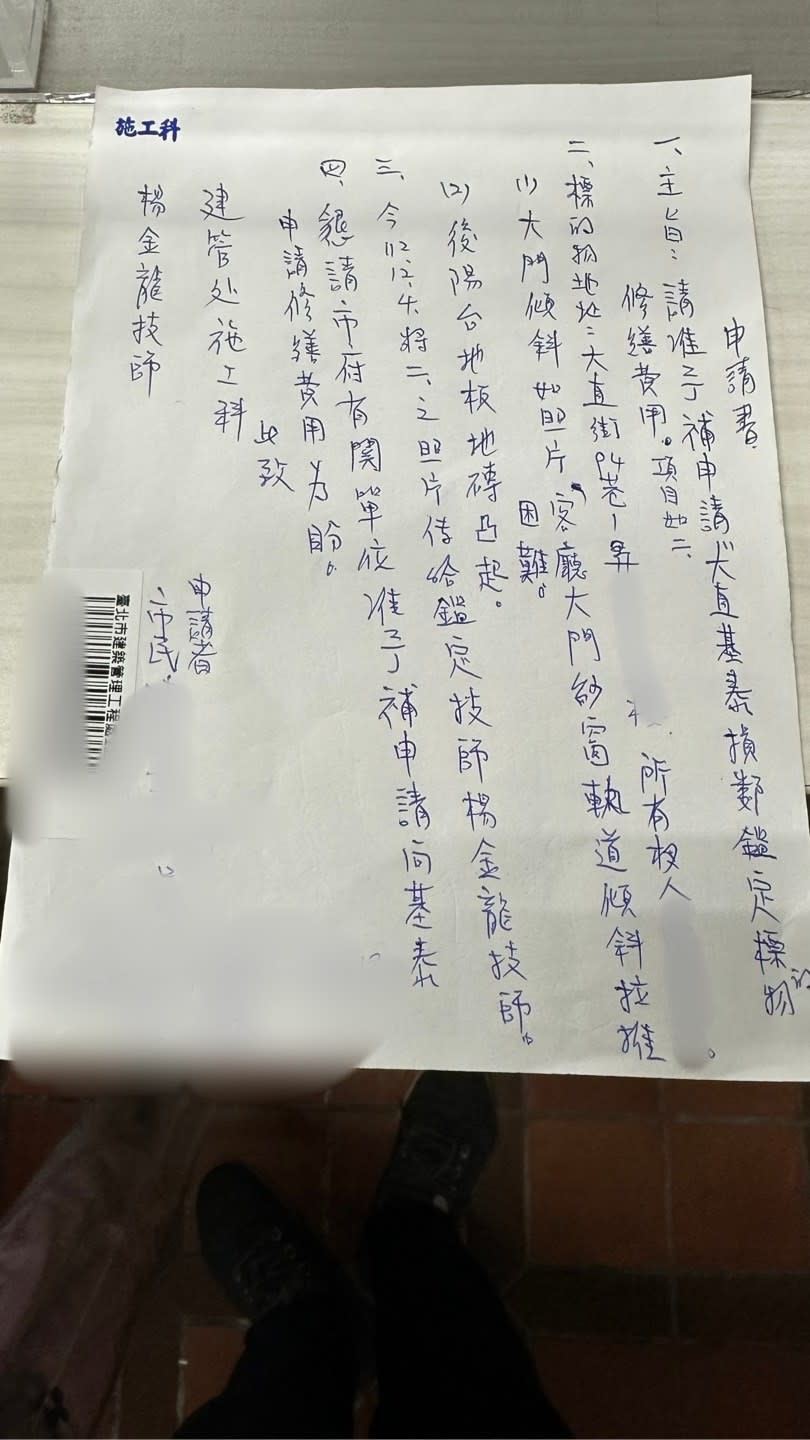 申請書
一、主旨：請准予補申請"大直基泰損鄰鑑定標的物
修繕費用。項目如二、
二、標的物地址：大直街94巷1弄
所有权人
(1)大門傾斜如照片，客廳大門紗窗軌道傾斜拉推
困難。
(2)後陽台地板地磚凸起。
三、今112.12.4.將二、之照片傳給鑑定技師楊金龍技師。
四、懇請市府有関單位准予補申請向基泰
申請修繕費用为盼。
此致
建管处施工科
楊金龍技師
施工科
申請者
市民
臺北市建築管理工程